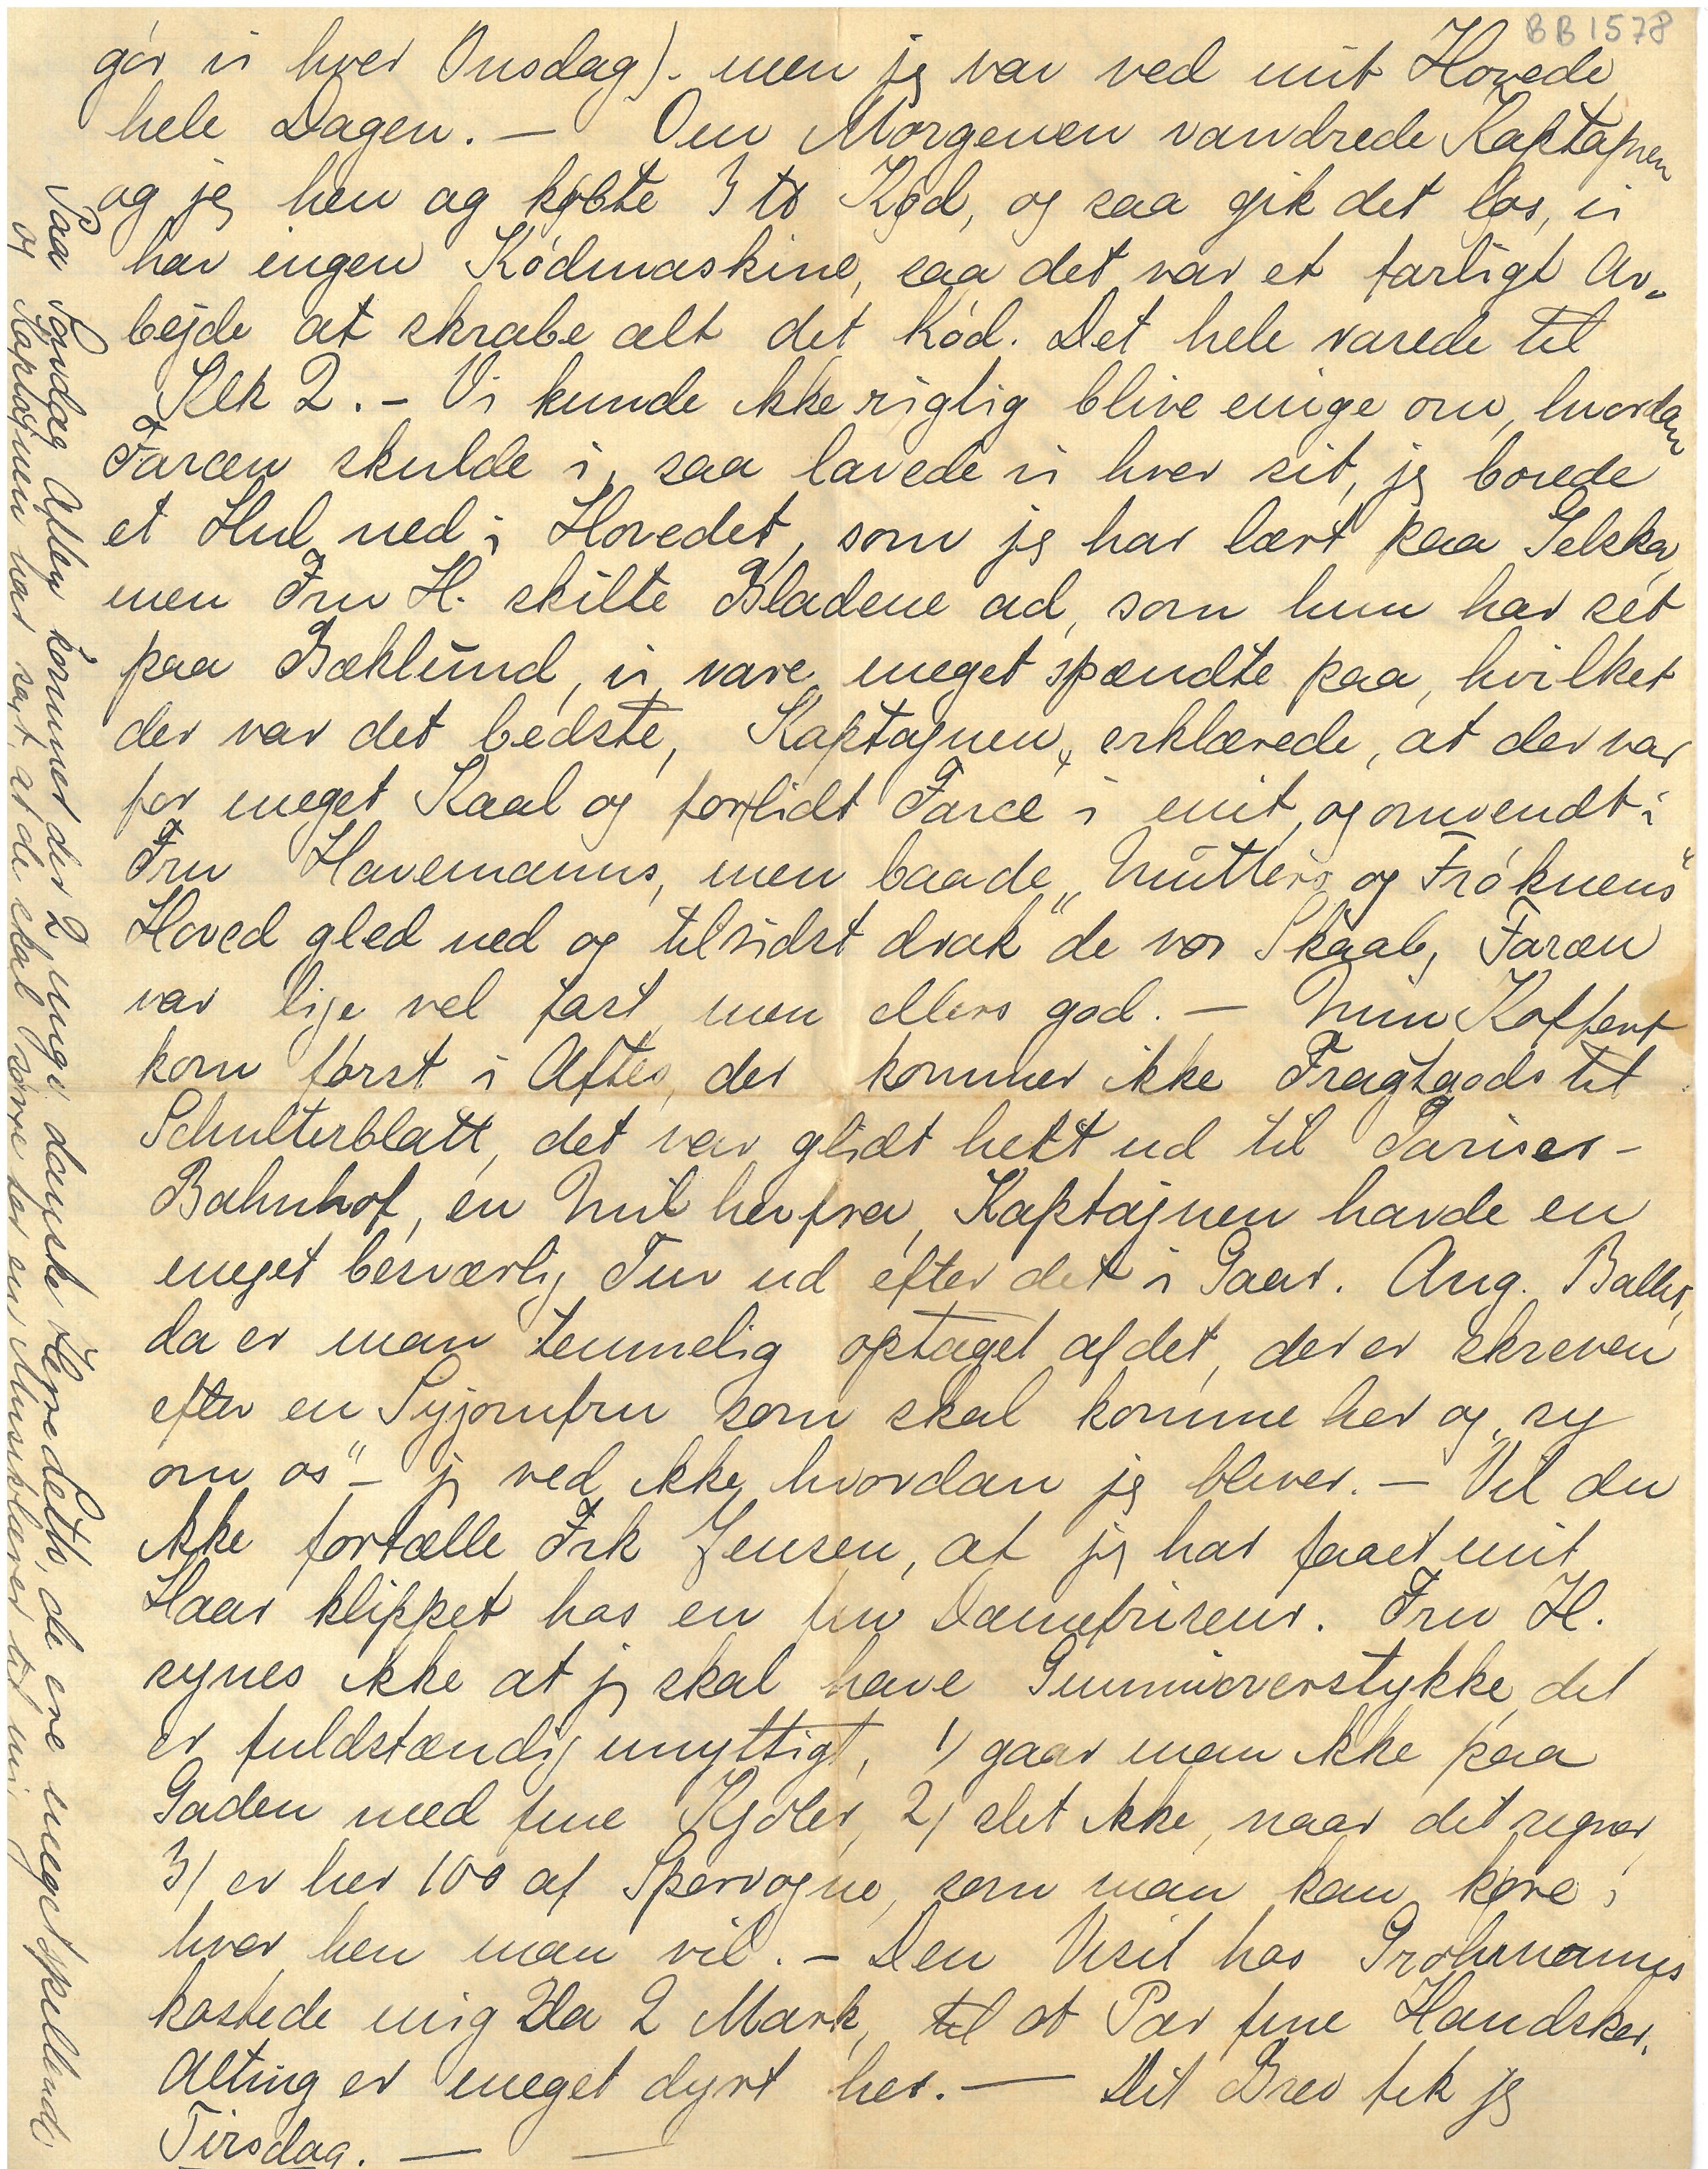 BB1578
gør vi hver Onsdag). men jeg var ved mit Hovede
hele Dagen. — Om Morgenen vandrede Kaptajnen
og jeg hen og købte 3 ℔ Kød, og saa gik det løs, vi
har ingen Kødmaskine, saa det var et farligt Ar-
bejde at skrabe alt det Kød. Det hele varede til
Klk 2. – Vi kunde ikke rigtig blive enige om, hvordan
Farcen skulde i, saa lavede vi hver sit, jeg borede
et Hul ned i Hovedet, som jeg har lært paa Gelskov,
men Fru H. skilte Bladene ad, som hun har sét
paa Bæklund, vi vare meget spændte paa, hvilket
der var det bedste, Kaptajnen erklærede, at der var
for meget Kaal og for lidt Farce i mit, og omvendt i
Fru Havemanns, men baade „Mutters og Frøknens"
Hoved gled ned og tilsidst drak de vor Skaal, Farcen
var lige vel fast, men ellers god. — Min Koffert
kom først i Aftes, der kommer ikke Fragtgods til
Schulterblatt, det var glidt helt ud til Pariser-
Bahnhof, en Mil herfra, Kaptajnen havde en
meget besværlig Tur ud efter det i Gaar. Ang. Ballet,
da er man temmelig optaget af det, der er skreven
efter en Syjomfru som skal komme her og „sy
om os" – jeg ved ikke hvordan jeg bliver. — Vil du
ikke fortælle Frk Jensen, at jeg har faaet mit
Haar klippet hos en fin Damefriseur. Fru H.
synes ikke at jeg skal have Gummioverstykke, det
er fuldstændig unyttigt, 1) gaar man ikke paa
Gaden med fine Kjoler, 2) slet ikke, naar det regner,
3) er her 100 af Sporvogne, som man kan køre i
hvor hen man vil. – Den Visit hos Grohmanns
kostede mig da 2 Mark, til et Par fine Handsker.
Alting er meget dyrt her. — Dit Brev fik jeg
Tirsdag. —
Paa Søndag Aften kommer der 2 unge danske Herrer, de ere meget spillende
og Kaptajnen har sagt, at de skal sørge for en Musiklærer til mig.